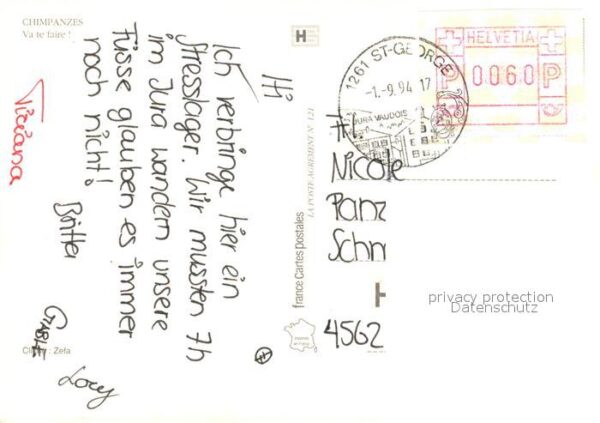 CHIMPANZES
Va te faire !
Hi
Ich verbringe hier ein
Stresslager. Wir mussten 7h
im Jura wandern unsere
Füsse glauben es immer
noch nicht!
Tiziana
Britta
Lory
Cliché : Zefa
france Cartes postales
LA POSTE AGREMENT N° 121
H
1261 ST-GEORGE
-1.-9.94 17
JURA VAUDOIS
HELVETIA
P 0060 P
Nicole
Panz
Schn
H
4562
privacy protection
Datenschutz